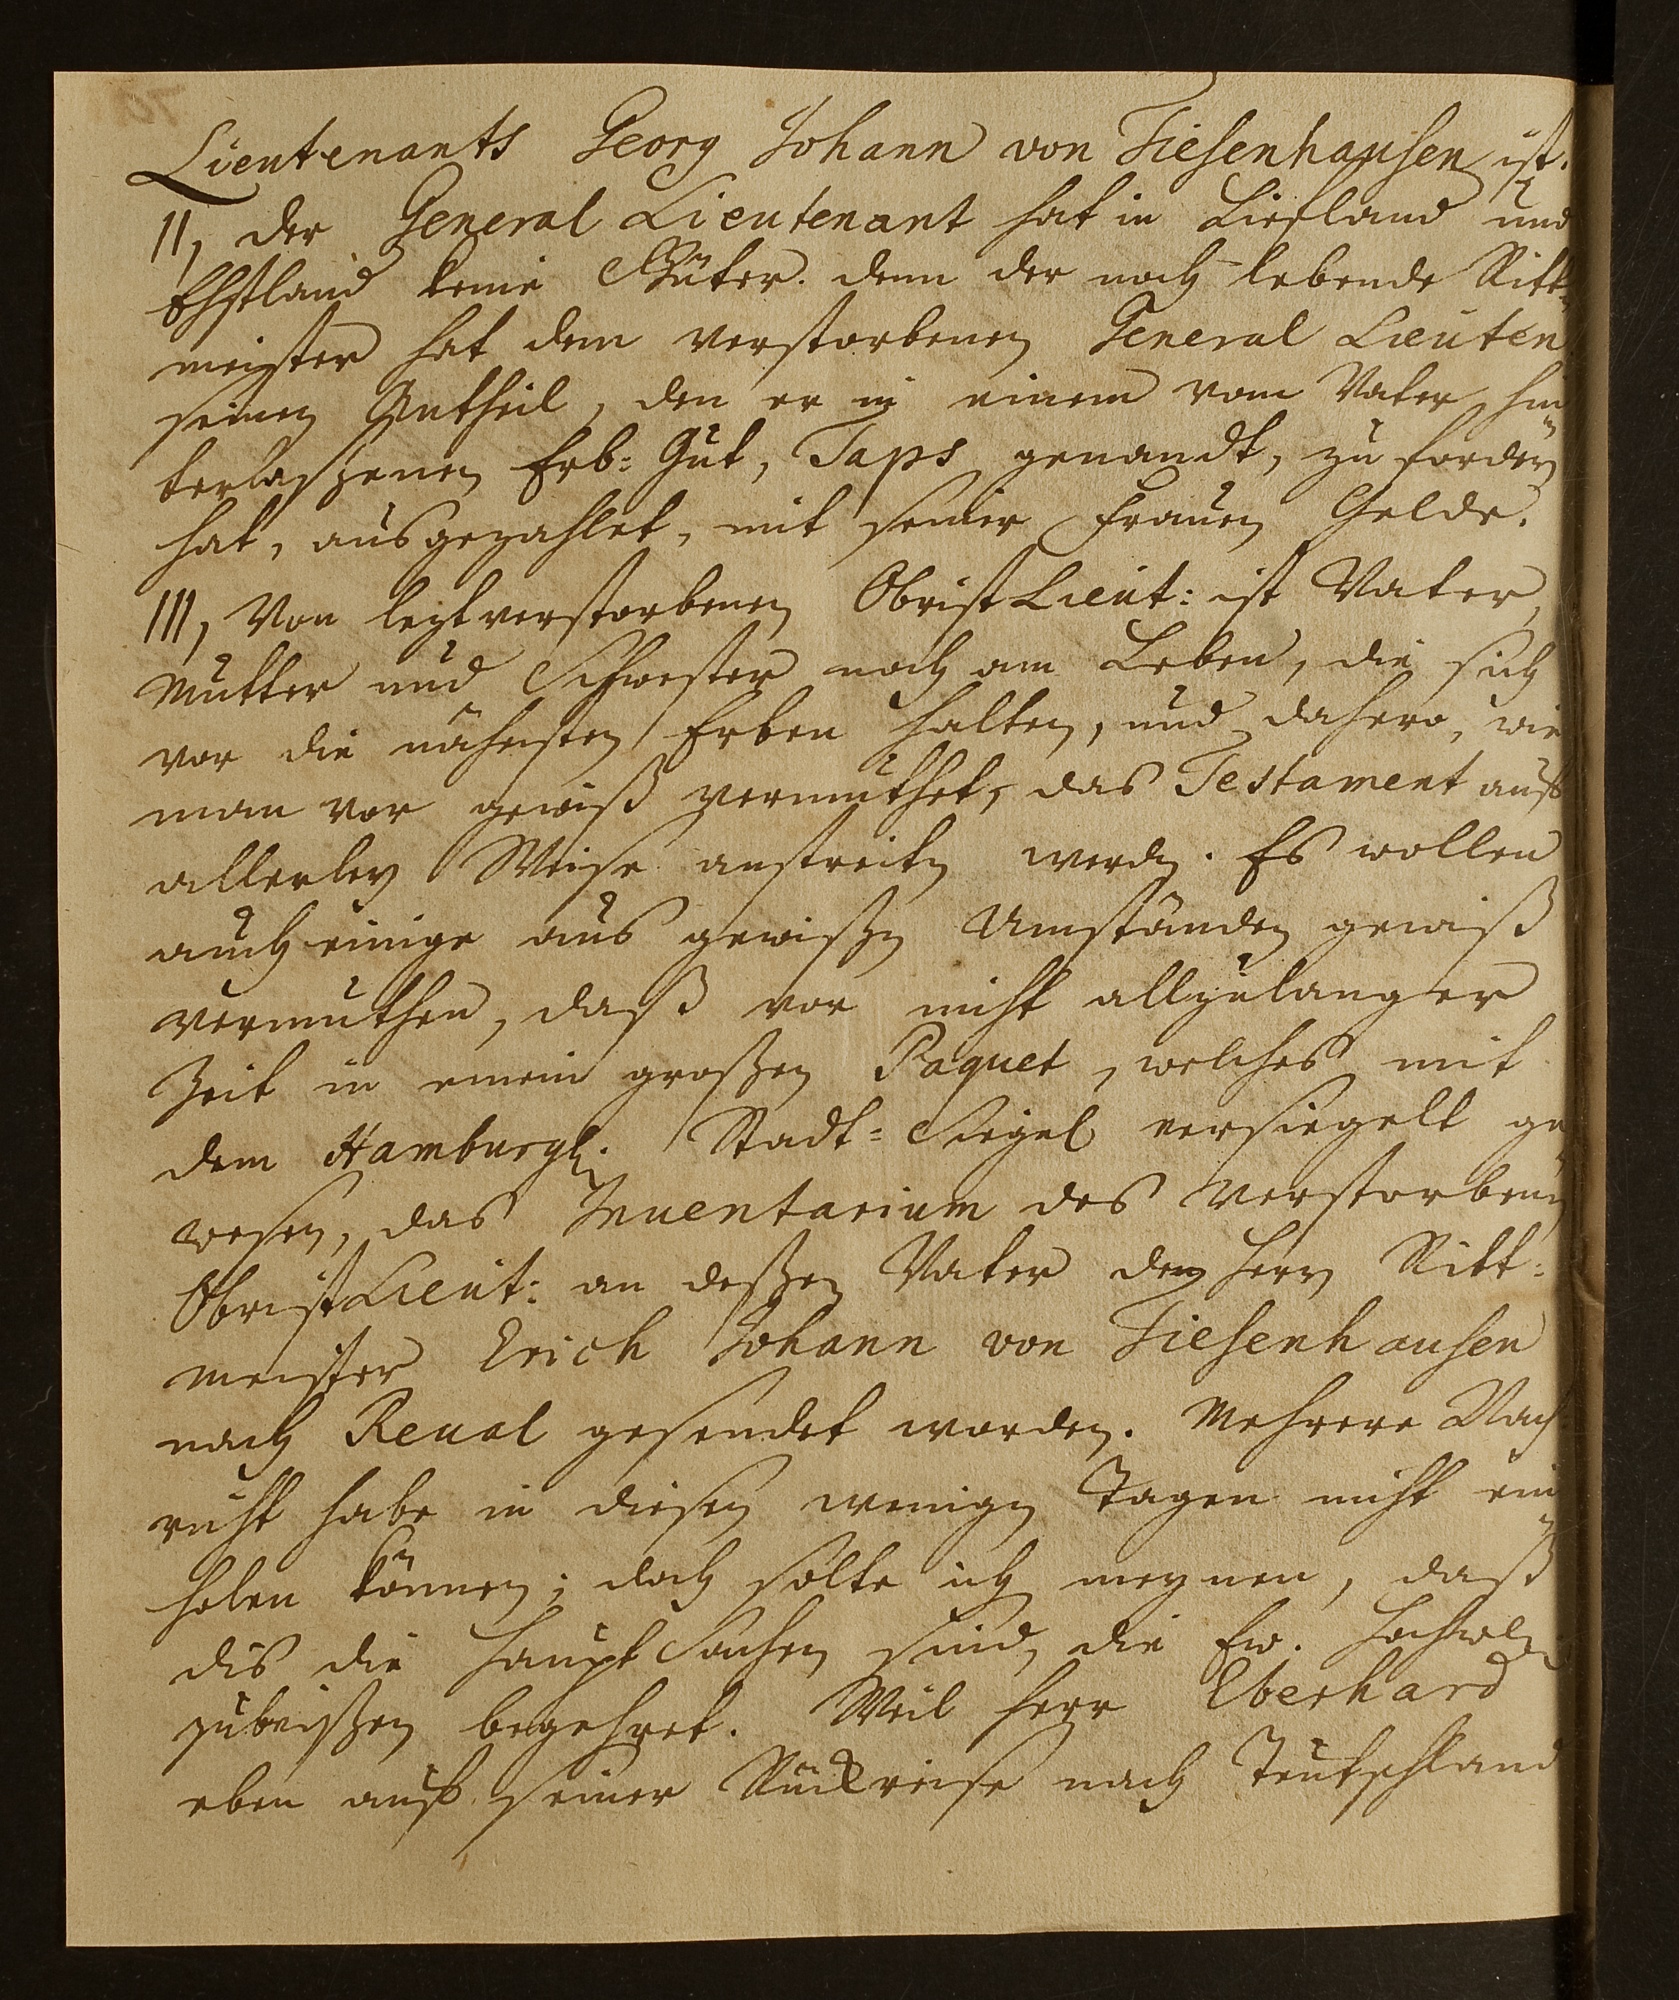 Lieutenants Georg Johann von Tiesenhausen ist.
II, Der General Lieutenant hat in Liefland und
Ehstland keine Güter. denn der noch lebende Ritt-
meister hat dem verstorbenen General Lieuten
seinen Antheil, den er in einem vom Vater hin
terlaßenen Erb-Gut, Taps genandt, zu fordern
hat, ausgezahlet, mit seiner Frauen Gelde.
III, Von leztverstorbenen Obrist Lieut: ist Vater,
Mutter und Schwester noch am Leben, die sich
vor die nähesten Erben halten, und dahero, wie
man vor gewiß vermuthet, das Testament auf
allerley Weise anstreiten werden. Es wollen
auch einige aus gewißen Umständen gewiß
vermuthen, daß vor nicht allzulanger
Zeit in einem großen Paquet, welches mit
dem Hamburgl. Stadt-Siegel versiegelt ge
wesen, das Inuentarium des Verstorbenen
Obrist Lieut: an deßen Vater den Herrn Ritt-
meister Erich Johann von Tiesenhausen
nach Reual gesendet worden. Mehrere Nach
richt habe in diesen wenigen Tagen nicht ein
holen können; doch solte ich meynen, daß
dis die Haupt Sachen sind, die Ew. Hochwol.
zuwißen begehret. Weil Herr Eberhard
eben auf seiner Rückreise nach Teutschland